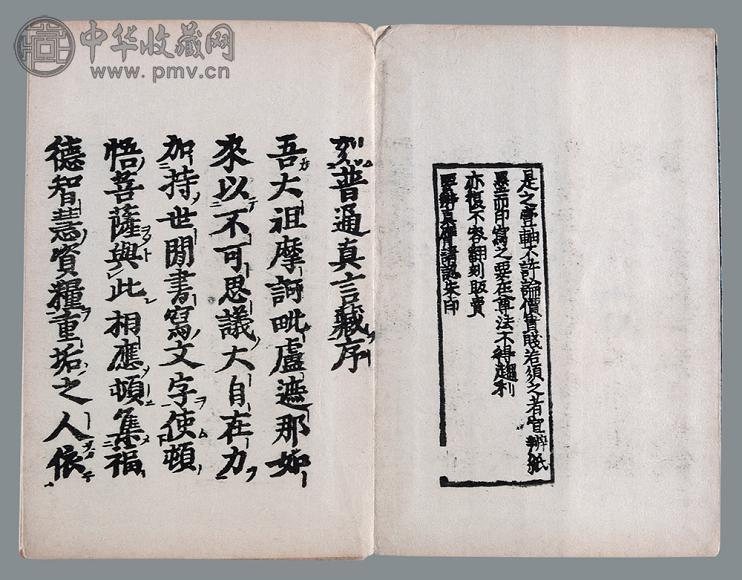 中华收藏网
www.pmv.cn
是之賣軸不許論價貴賤若須之者宜辨紙
墨而印寫之要在尊法不得趨利
亦復不容翻刻販賣
要辨真贋請認朱印
刻普通真言藏序
吾大祖摩訶毗盧遮那如
來以不可思議大自在力
加持世間書寫文字使頓
悟菩薩與此相應頓集福
德智慧資糧重垢之人依